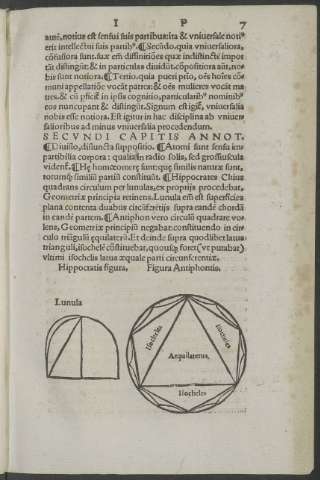 I P 7
autē, notius est sensui suis partibꝰ: vnitra & vniuersale noti⁹
eris intellectui suis partibꝰ. ¶ Secūdo. quia vniuersaliora,
cōfusiora sunt. suæ em̄ diffinitiōes quæ indistincte impor
tāt distingūt: & in particulas diuidūt. cōpositiora aūt, no-
bis sunt notiora. ¶ Tertio. quia pueri prīo, oēs hoīes cō
muni appellatiōe vocāt patres: & oēs mulieres vocāt ma
tres. & cū pficiūt in ipsa cognitio, particularibꝰ nominibꝰ
eos nuncupant & distingūt. Signum est igit̄, vniuersalia
nobis esse notiora. Est igitur in hac disciplina ab vniuer
salioribus ad minus vniuersalia procedendum.
SECVNDI CAPITIS ANNOT.
¶ Diuisio, disiuncta suppositio. ¶ Atomi sunt sensu im
partibilia corpora: qualia in radio solis, sed grossiuscula
vident̄. ¶ Hę homœomerę sunt: quę similis naturæ sunt,
totumq; similiū partiū constituūt. ¶ Hippocrates Chius
quadrans circulum per lunulas, ex proprijs procedebat,
Geometriæ principia retinens. Lunula em̄ est superficies
plana contenta duabus circūferētijs supra eandē chordā
in eandē partem. ¶ Antiphon vero circulū quadrare vo-
lens, Geometriæ principiū negabat: constituendo in cir
culo triāgulū equilaterū. Et deinde supra quodlibet latus
trianguli, isochelē cōstituebat, quousq; foret (vt putabat)
vltimi isochelis latus æquale parti circunferentiæ.
Hippocratis figura, Figura Antiphontis.
Lunula
Isocheles
Isocheles
Aequilaterus,
Isocheles